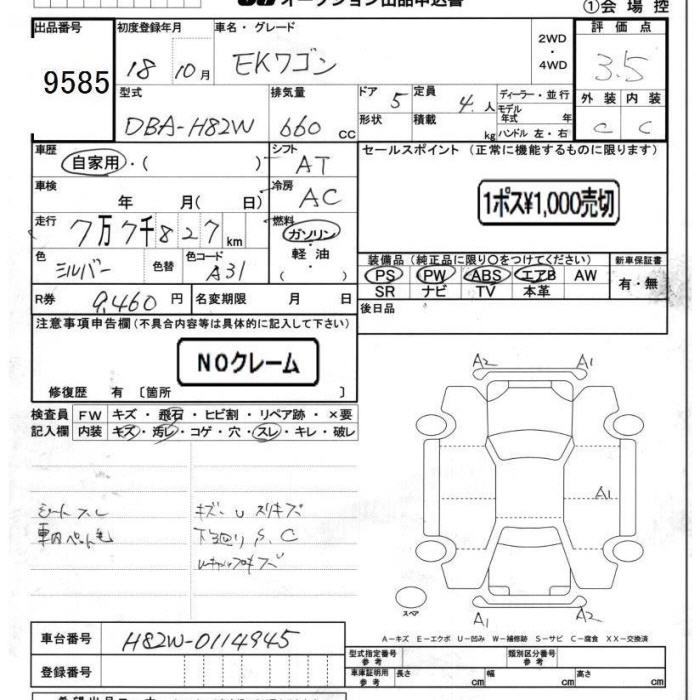 オークション出品申込書
①会場控
出品番号 初度登録年月 車名・グレード 評価点
9585 18 10月 EKワゴン 2WD・4WD 3.5
型式 排気量 ドア 5 定員 4.人 ディーラー・並行 外装 内装
DBA-H82W 660 cc 形状 積載 kg モデル年式 年 ハンドル 左・右 C C
車歴 自家用・( ) シフト AT セールスポイント (正常に機能するものに限ります)
車検 年 月( 日) 冷房 AC 1ポス¥1,000売切
走行 7万7千827km 燃料 ガソリン 軽油 ・( )
色 シルバー 色替 色コード A31
装備品 (純正品に限り○をつけてください) 新車保証書
PS PW ABS エアB AW 有・無
SR ナビ TV 本革
R券 9,460円 名変期限 月 日 後日品
注意事項申告欄(不具合内容等は具体的に記入して下さい)
NOクレーム
修復歴 有 〔箇所 〕
検査員 FW キズ・飛石・ヒビ割・リペア跡・×要
記入欄 内装 キズ・汚レ・コゲ・穴・スレ・キレ・破レ
A2 A1
A1
シートスレ キズ、U スリキズ
車内ペット毛 下廻り S、C
スペア
A1 A2
A−キズ E−エクボ U−凹み W−補修跡 S−サビ C−腐食 XX−交換済
車台番号 H82W-0114945
型式指定番号 参考 類別区分番号 参考
登録番号 車庫証明用 参考 長さ cm 幅 cm 高さ cm